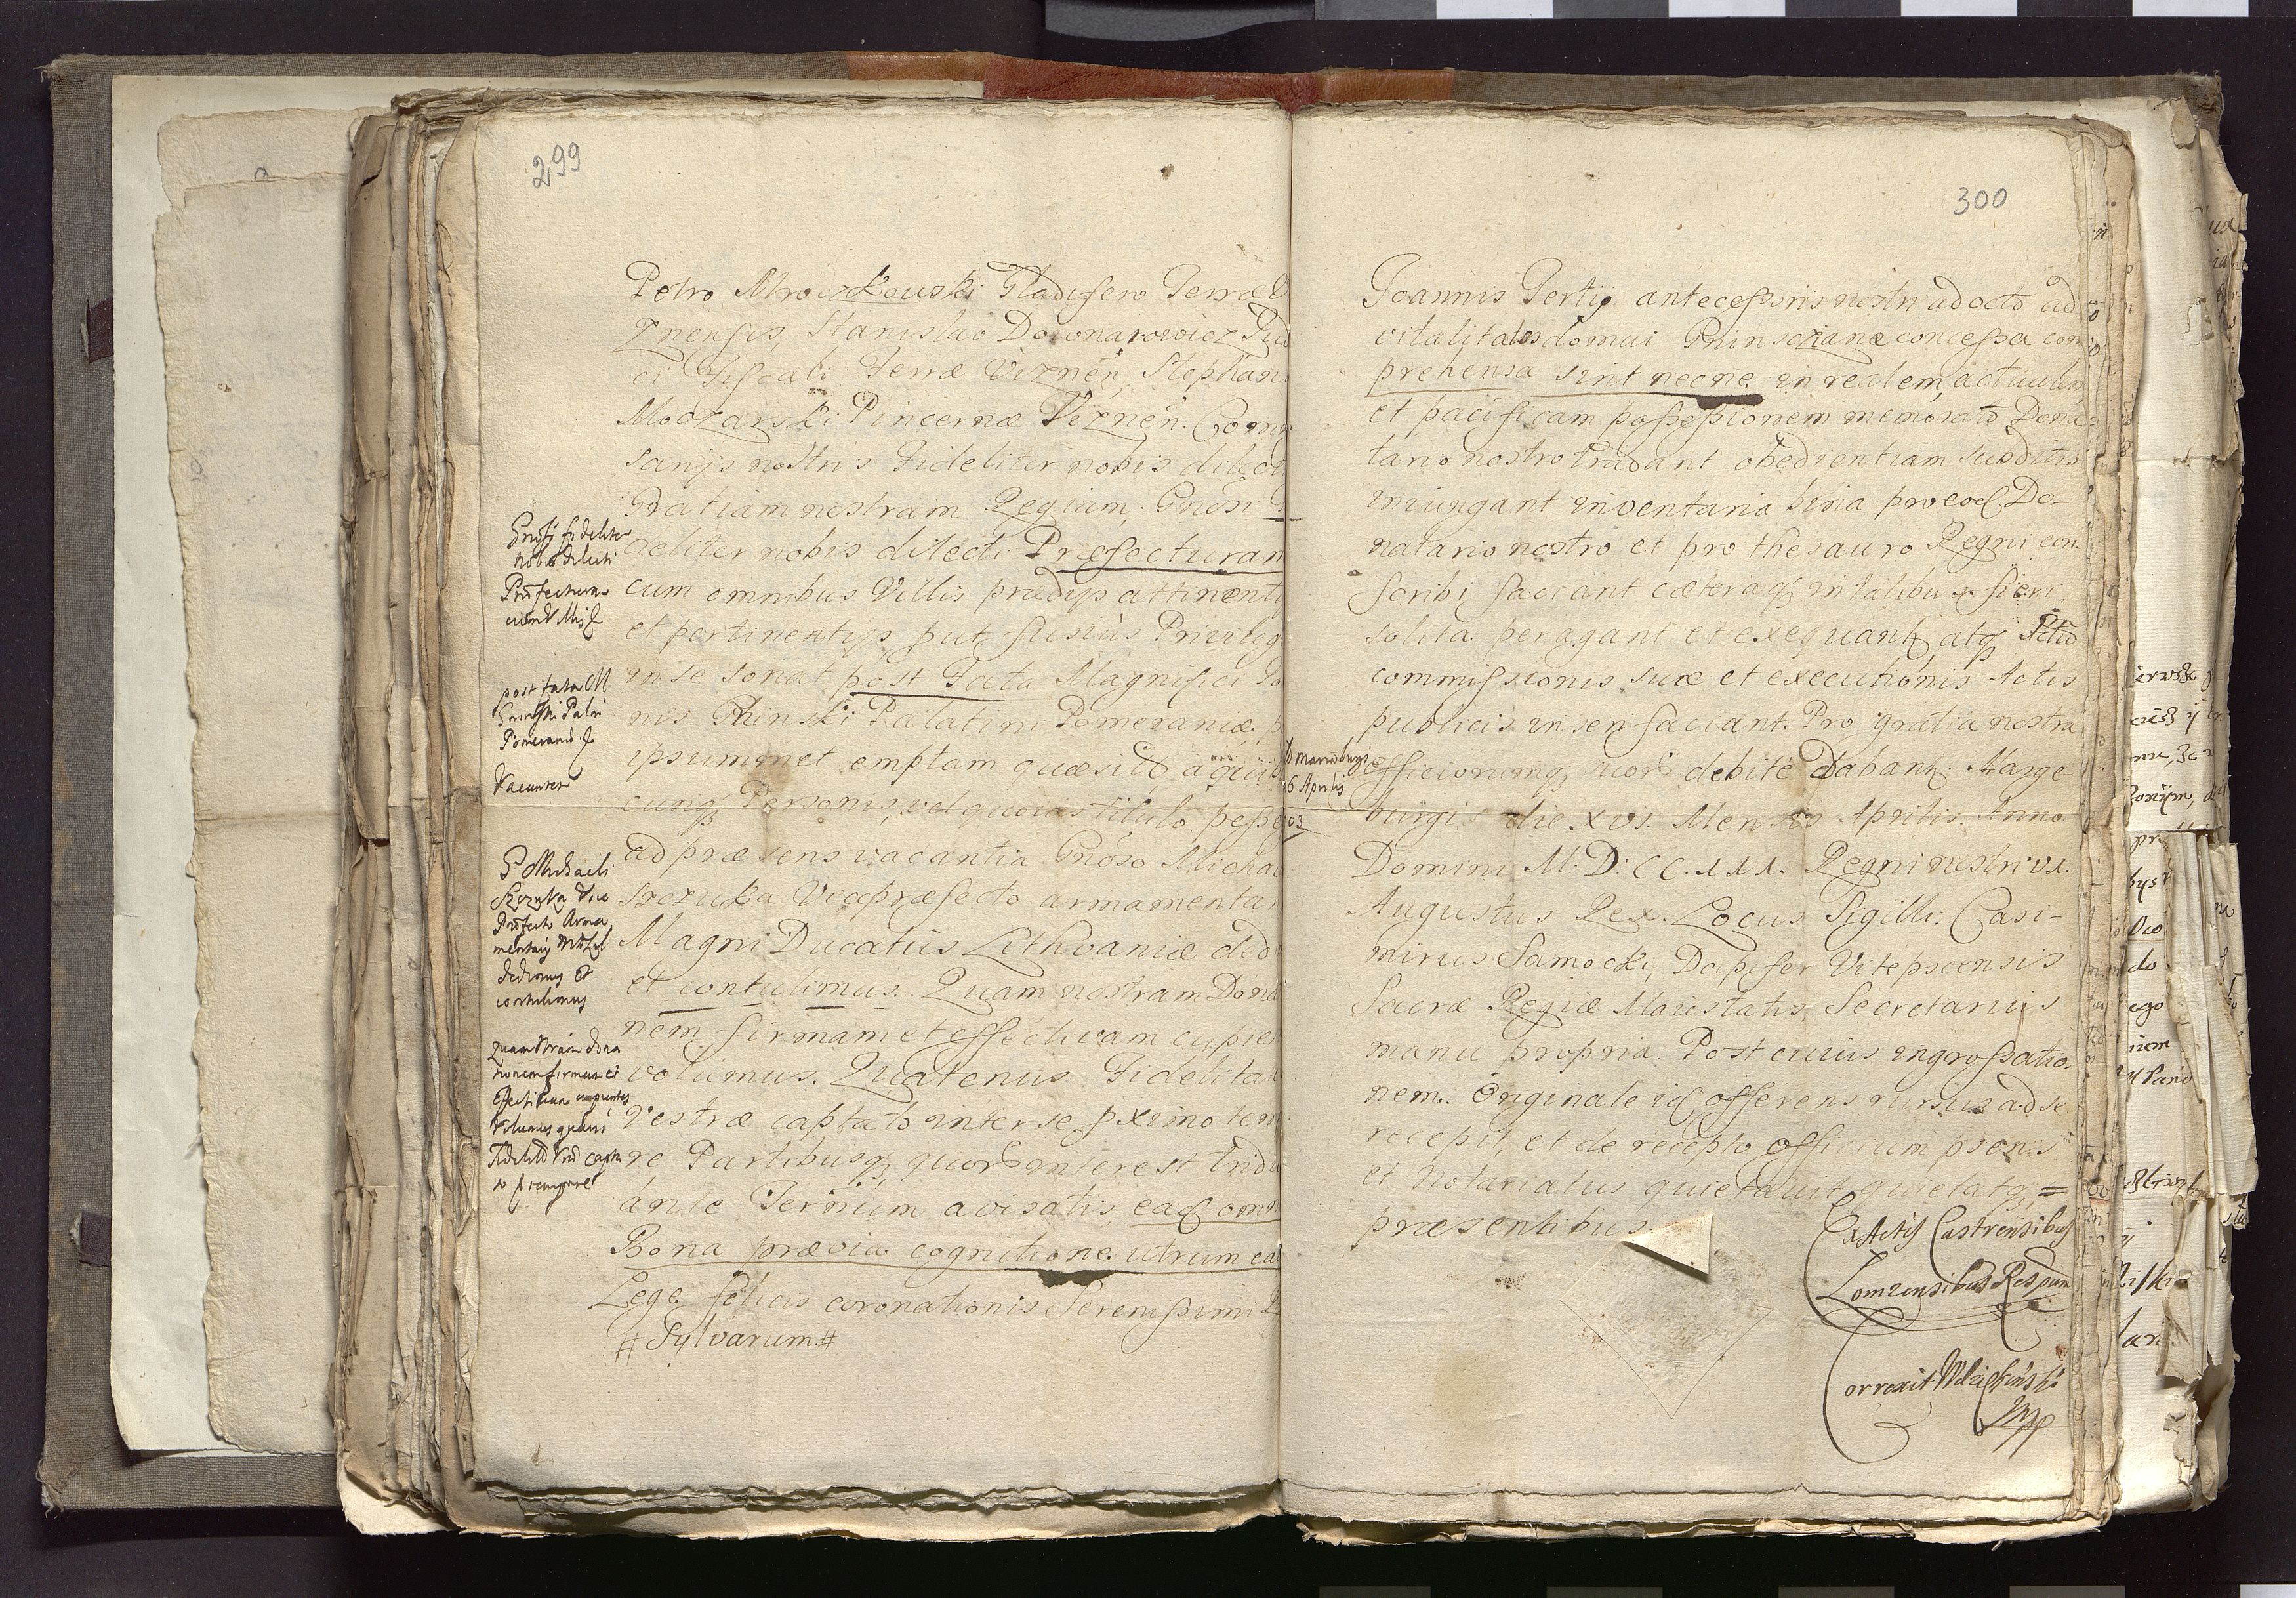 299
Petro Mroczkowski Gladifero Terræ
Znensis, Stanislao Dowonarowicz Iu
ci Fiscali Terræ Viznen, Stephan
Moczarski Pincernæ Viznen. Com
sarijs nostris Fideliter nobis dilect
Gratiam nostram Regiam. Gnosi
deliter nobis dilecti Præfecturam
cum omnibus Villis prædijs attinenti
et pertinentijs, put fusius Privileg
in se sonat post Fata Magnifici
nis Gninski Palatini Pomeraniæ,
ipsummet emptam quæsit a qui
cunqz Personis, vel quovis titulo posse
ad præsens vacantia Gnoso Micha
Szczuka Vicepræfecto armamentar
Magni Ducatus Lithvaniæ ded
et contulimus. Quam nostram Dona
nem firmam et effectivam cupien
volumus. Quatenus Fidelitat
Vestræ captato inter se pximo tem
re Partibusqz quor interest tridu
ante Ternum avisatis, ead omn
Bona prævia cognitione utrum ea
Lege felicis coronationis Serenissimi
# Sylvarum #
Gnosi fideliter
nobis dilecti
Præfectura
cum Villis
post fata M
Gninski Palni
Pomeraniæ
Vacantem
G Michaeli
Szczuka Vice
Præfecto Arma
mentarij M D L
dedimus et
contulimus
Quam Nram dona
tionem firmam et
effectivam cupientes
Volumus quatenus
Fidelit Vræ capta
to p tempore
300
Joannis Tertij antecessoris nostri ad octo ad
vitalitates domui Gninscianæ concessa com
prehensa sint necne in realem, actualem
et pacificam possessionem memorato Dona
tario nostro tradant obedientiam subditis
iniungant inventaria bina pro eod Do-
natario nostro et pro thesauro Regni con-
scribi faciant cæteraqz in talibus fieri
solita peragant et exequantur atqz Actu
commissionis suæ et executionis Actis
publicis inseri faciant. Pro gratia nostra
officiorumqz suor debite Dabant Marge-
burgi die XVI Mensis Aprilis Anno
Domini M: D: CC. III. Regni nostri VI.
Augustus Rex. Locus Sigilli: Casi-
mirus Zamocki, Dapifer Vitepscensis
Sacræ Regiæ Maiestatis Secretarius
manu propria. Post cuius ingrossatio-
nem. Originale id offerens rursus ad se
recepit, et de recepto officium præns
et Notariatus quietavit, quietatqz =
præsentibus.
D mariæburgi
16 Aprilis
03
Ex Actis Castrensibus
Lomzensibus
Correxit